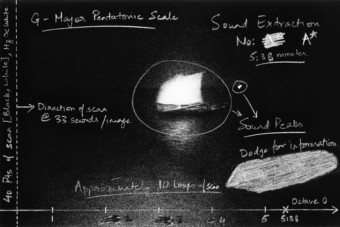 G - Major Pentatonic Scale
Sound Extraction
No: A*
5:38 minutes
40 Pts of scan [Black, White], Hz
Direction of scan
@ 33 seconds/image
Sound Peaks
Dodge for information
Approximately 10 Loops of scan
Octave 0
1 2 3 4 5 5:38